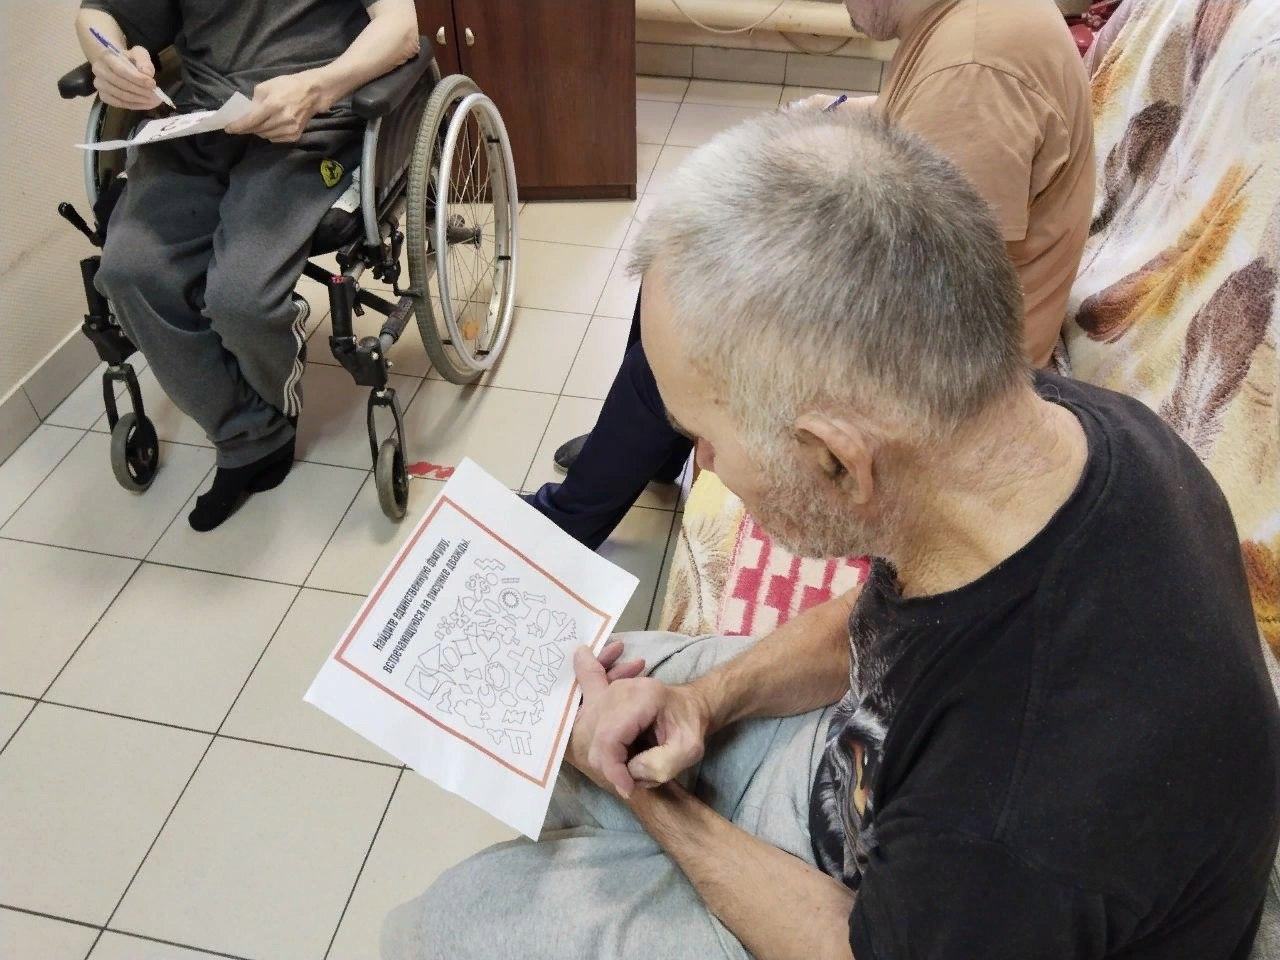 Найдите единственную фигуру,
встречающуюся на рисунке дважды.